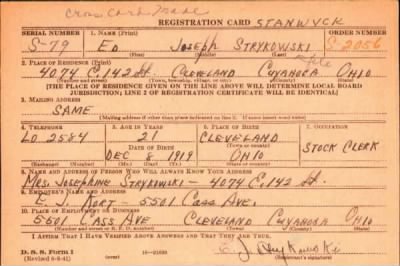 Cross Card Made
REGISTRATION CARD STANWYCK
SERIAL NUMBER 1. NAME (Print) ORDER NUMBER
S-79 ED JOSEPH STRYKOWSKI S-2056
(First) (Middle) (Last)
2. PLACE OF RESIDENCE (Print) file
4074 E. 142 St. CLEVELAND CUYAHOGA OHIO
(Number and street) (Town, township, village, or city) (County) (State)
[THE PLACE OF RESIDENCE GIVEN ON THE LINE ABOVE WILL DETERMINE LOCAL BOARD
JURISDICTION; LINE 2 OF REGISTRATION CERTIFICATE WILL BE IDENTICAL]
3. MAILING ADDRESS
SAME
[Mailing address if other than place indicated on line 2. If same insert word same]
4. TELEPHONE 5. AGE IN YEARS 6. PLACE OF BIRTH 7. OCCUPATION
LO 2584 21 CLEVELAND
DATE OF BIRTH (Town or county) STOCK CLERK
DEC 8 1919 OHIO
(Exchange) (Number) (Mo.) (Day) (Yr.) (State or country)
8. NAME AND ADDRESS OF PERSON WHO WILL ALWAYS KNOW YOUR ADDRESS
MRS. JOSEPHINE STRYKOWSKI - 4074 E. 142 St.
9. EMPLOYER'S NAME AND ADDRESS
E. J. KORT - 5501 CASS AVE.
10. PLACE OF EMPLOYMENT OR BUSINESS
5501 CASS AVE CLEVELAND CUYAHOGA OHIO
(Number and street or R. F. D. number) (Town) (County) (State)
I AFFIRM THAT I HAVE VERIFIED ABOVE ANSWERS AND THAT THEY ARE TRUE.
D. S. S. Form 1